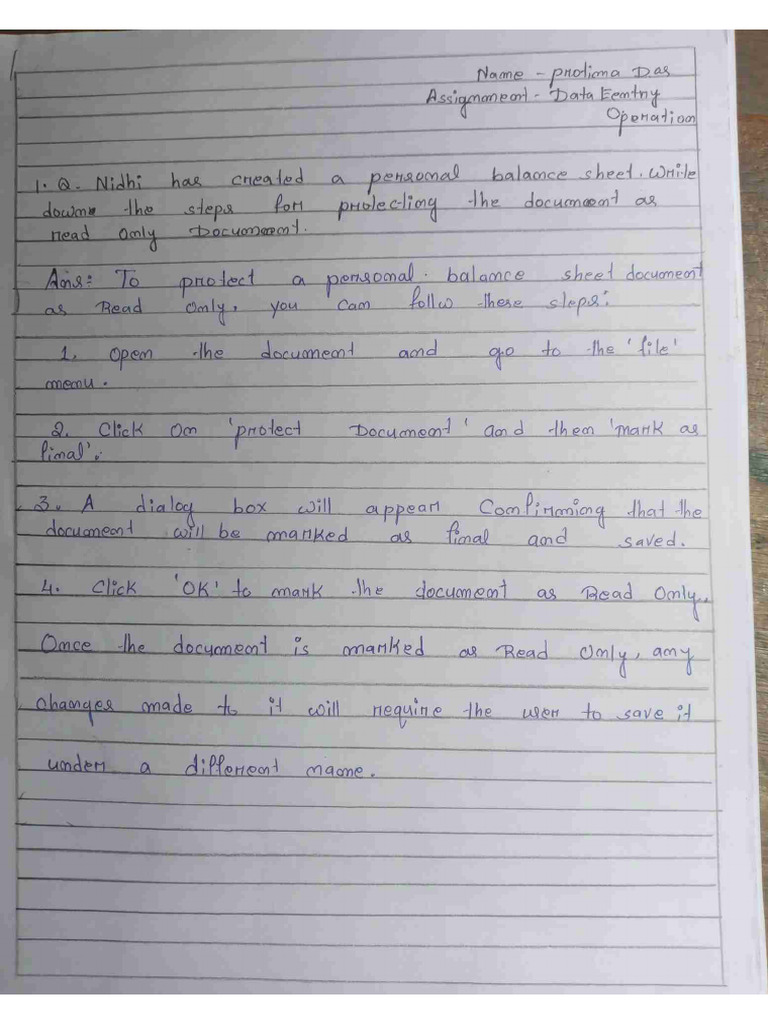 Name - Protima Das
Assignment - Data Eentry
Operation
1. Q. Nidhi has created a personal balance sheet. Write
down the steps for protecting the document as
read only Document.
Ans: To protect a personal balance sheet document
as Read Only, you can follw these steps:
1. Open the document and go to the 'file'
menu.
2. Click On 'protect Document' and then 'mark as
final'.
3. A dialog box will appear Confirming that the
document will be marked as final and saved.
4. Click 'OK' to mark the document as Read Only.
Once the document is marked as Read Only, any
changes made to it will require the user to save it
under a different name.